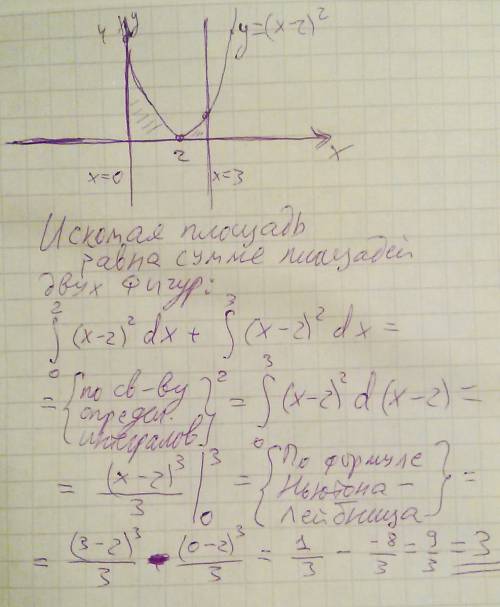 4 y y=(x-2)²
2 x
x=0 x=3
Искомая площадь
равна сумме площадей
двух фигур:
∫₀² (x-2)² dx + ∫₂³ (x-2)² dx =
= {по св-ву определ. интегралов} = ∫₀³ (x-2)² d(x-2) =
= (x-2)³/3 |₀³ = {По формуле Ньютона-Лейбница} =
= (3-2)³/3 - (0-2)³/3 = 1/3 - -8/3 = 9/3 = 3